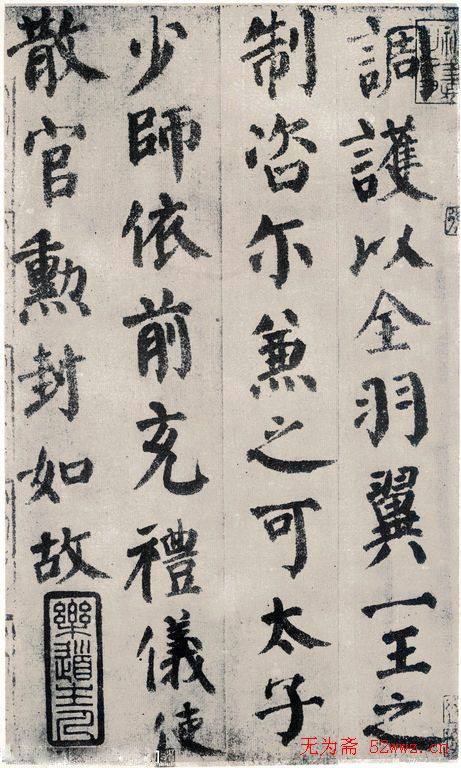 調護以全羽翼一王之
制咨尔兼之可太子
少師依前充禮儀使
散官勳封如故
樂道主人
无为斋 52wwz.cn